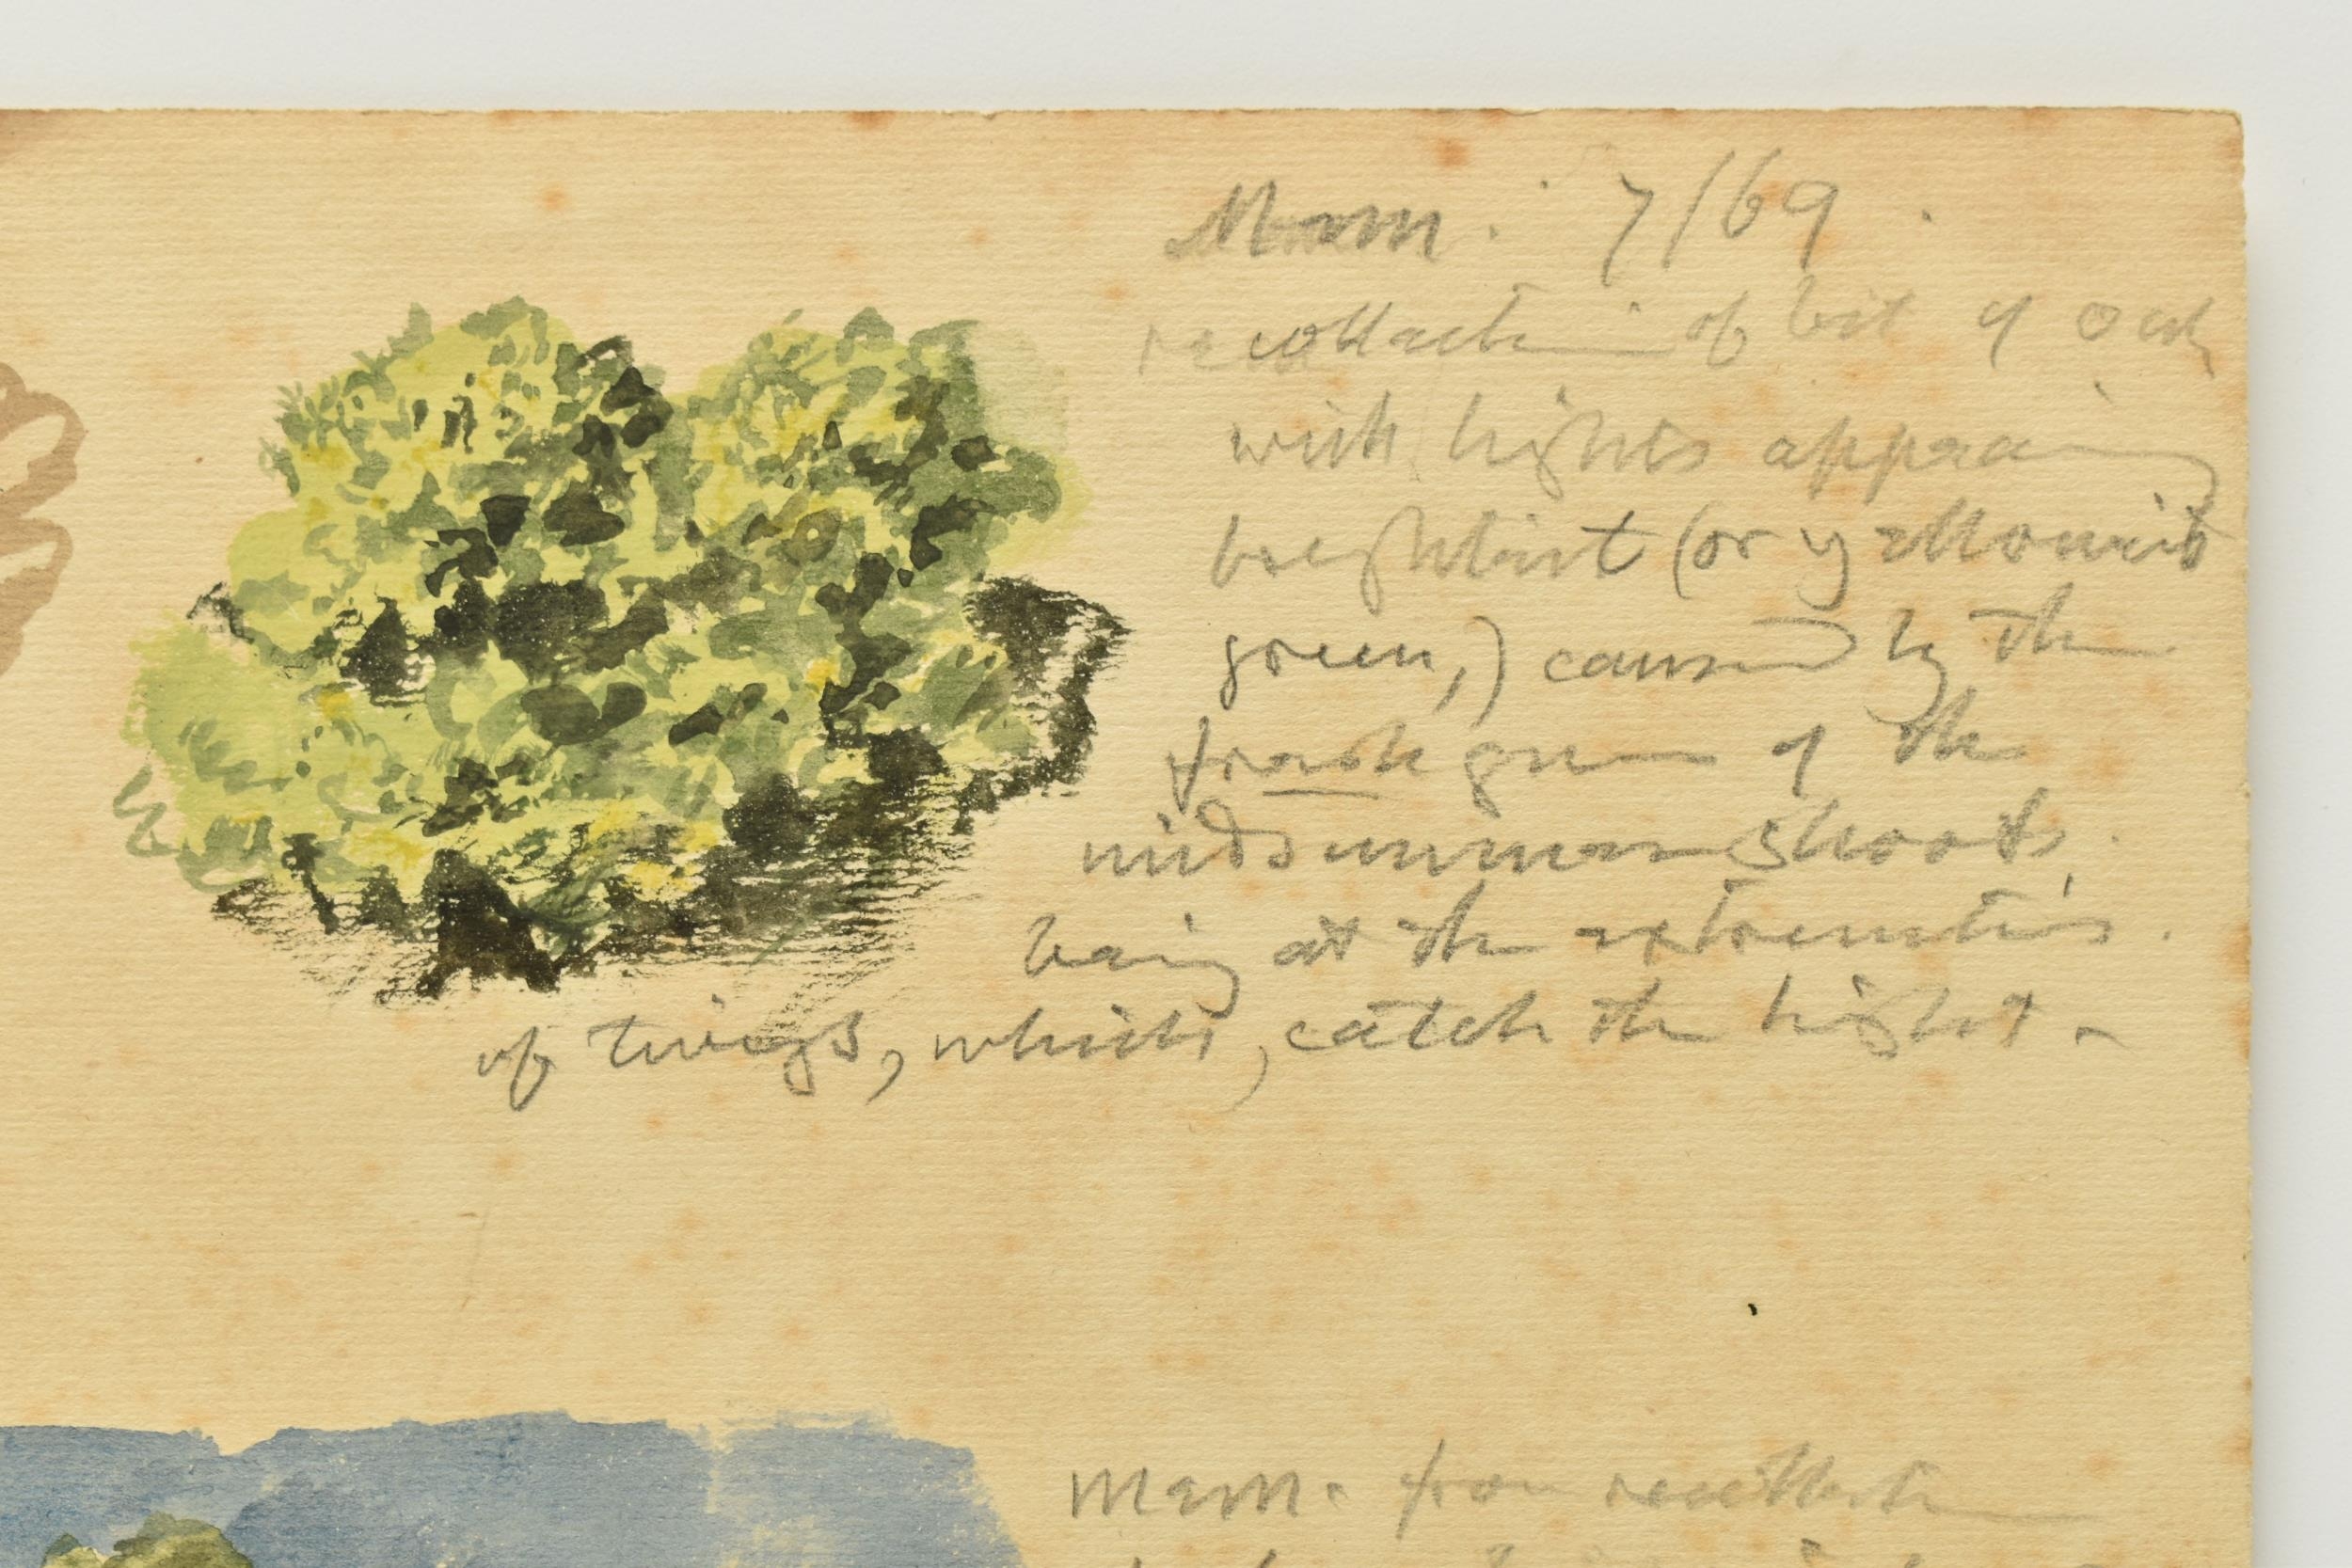 Mem. 7/69.
recollection of bit of Oak,
with lights appearing
brightest (or yellowish
green,) caused by the
fresh green of the
midsummer shoots,
being at the extremities.
of twigs, which, catch the light -
Mem. from recollection